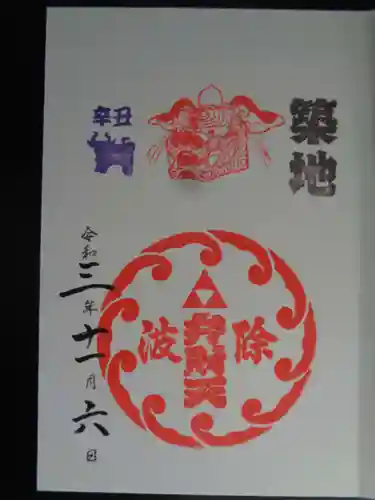 築地
辛丑
除
弁財天
波
令和三年十一月六日